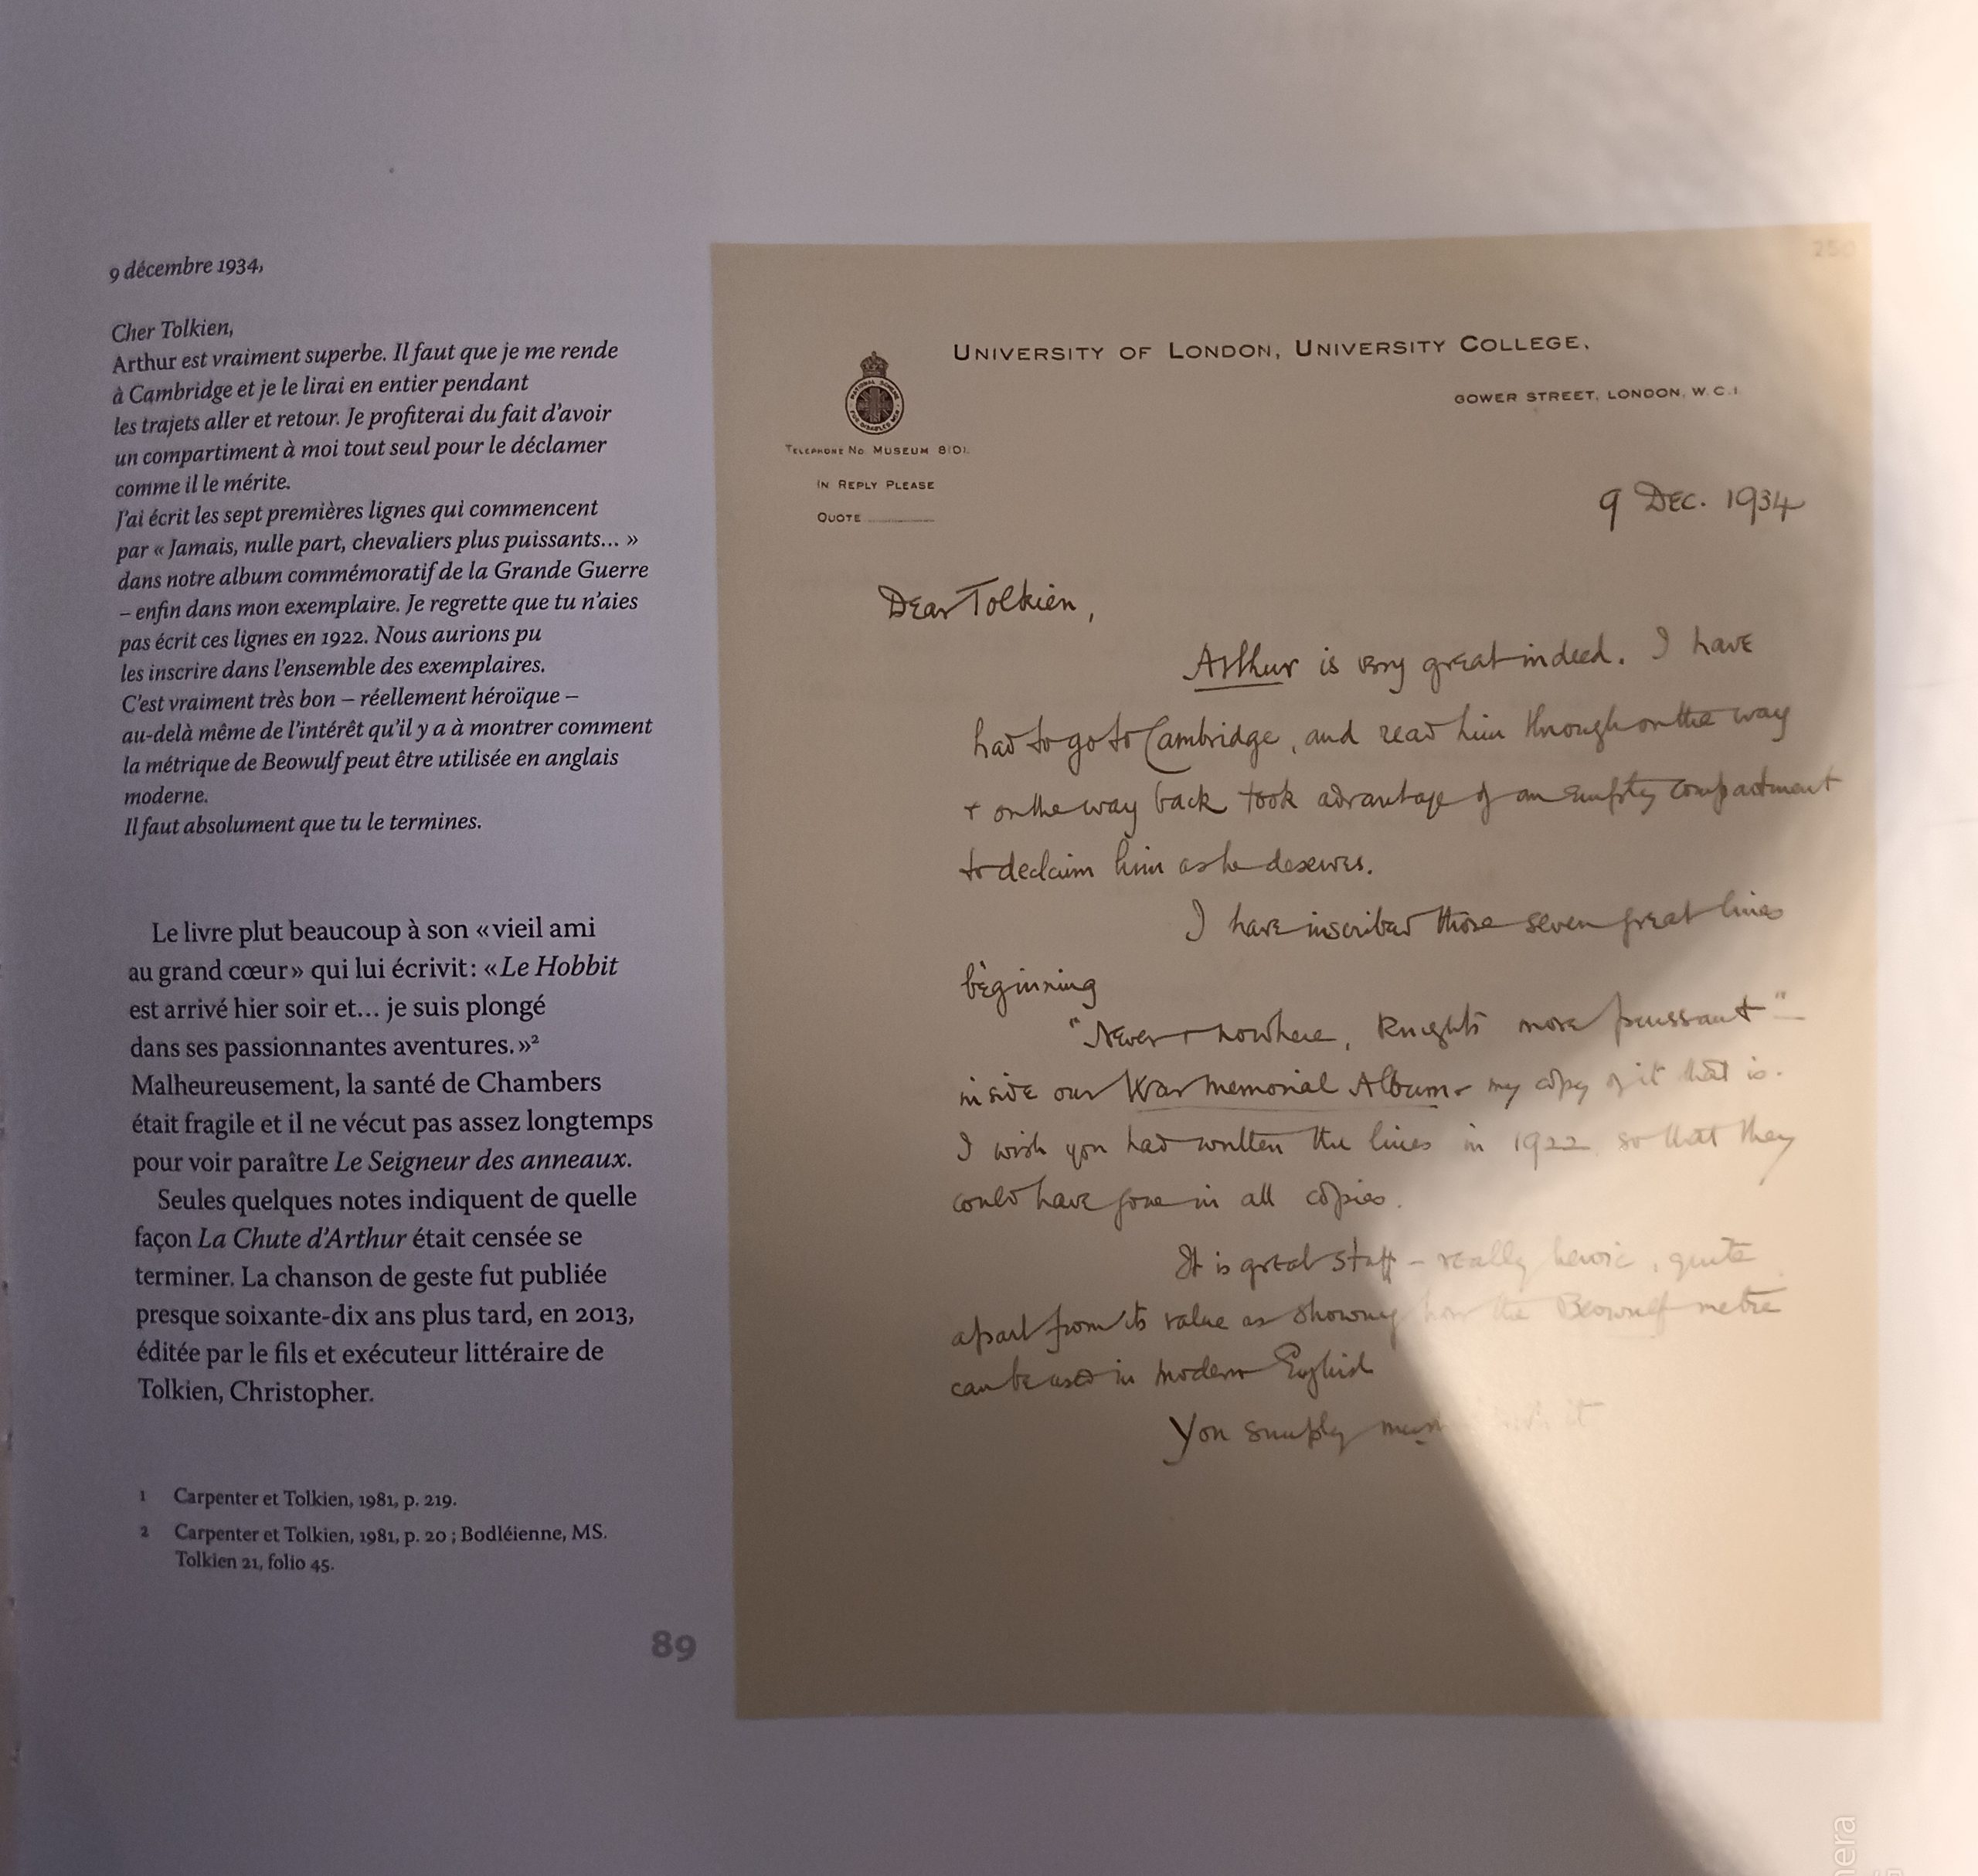 9 décembre 1934,
Cher Tolkien,
Arthur est vraiment superbe. Il faut que je me rende
à Cambridge et je le lirai en entier pendant
les trajets aller et retour. Je profiterai du fait d’avoir
un compartiment à moi tout seul pour le déclamer
comme il le mérite.
J’ai écrit les sept premières lignes qui commencent
par « Jamais, nulle part, chevaliers plus puissants… »
dans notre album commémoratif de la Grande Guerre
– enfin dans mon exemplaire. Je regrette que tu n’aies
pas écrit ces lignes en 1922. Nous aurions pu
les inscrire dans l’ensemble des exemplaires.
C’est vraiment très bon – réellement héroïque –
au-delà même de l’intérêt qu’il y a à montrer comment
la métrique de Beowulf peut être utilisée en anglais
moderne.
Il faut absolument que tu le termines.
Le livre plut beaucoup à son « vieil ami
au grand cœur » qui lui écrivit : « Le Hobbit
est arrivé hier soir et… je suis plongé
dans ses passionnantes aventures. »²
Malheureusement, la santé de Chambers
était fragile et il ne vécut pas assez longtemps
pour voir paraître Le Seigneur des anneaux.
Seules quelques notes indiquent de quelle
façon La Chute d’Arthur était censée se
terminer. La chanson de geste fut publiée
presque soixante-dix ans plus tard, en 2013,
éditée par le fils et exécuteur littéraire de
Tolkien, Christopher.
1 Carpenter et Tolkien, 1981, p. 219.
2 Carpenter et Tolkien, 1981, p. 20 ; Bodléienne, MS.
Tolkien 21, folio 45.
89
250
UNIVERSITY OF LONDON, UNIVERSITY COLLEGE.
GOWER STREET, LONDON, W.C.1.
TELEPHONE No. MUSEUM 8101.
IN REPLY PLEASE
QUOTE
9 DEC. 1934
Dear Tolkien,
Arthur is very great indeed. I have
had to go to Cambridge, and read him through on the way
+ on the way back took advantage of an empty compartment
to declaim him as he deserves.
I have inscribed those seven great lines
beginning
"Never + nowhere, Knights more puissant" –
inside our War Memorial Album – my copy of it that is.
I wish you had written the lines in 1922 so that they
could have gone in all copies.
It is great stuff – really heroic, quite
apart from its value as showing how the Beowulf metre
can be used in modern English
You simply must it